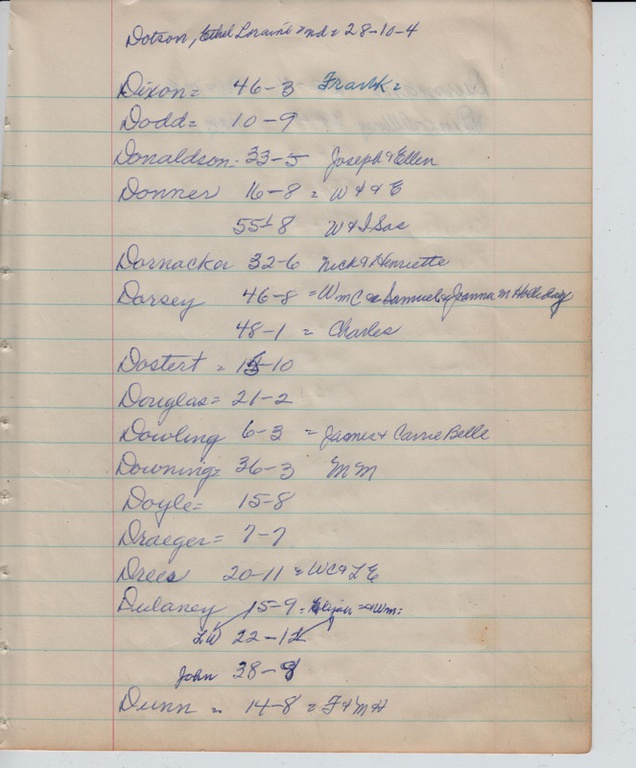 Dotson, Ethel Loraine = 28-10-4
Dixon = 46-3 Frank =
Dodd = 10-9
Donaldson - 33-5 Joseph & Ellen
Donner 16-8 = W & E
55-8 W &
Dornacker 32-6 Nick & Henriette
Dorsey 46-8 = Wm C & Samuel & Joanna M Holliday
48-1 = Charles
Dostert = -10
Douglas = 21-2
Dowling 6-3 = James & Carrie Belle
Downing = 36-3 M M
Doyle = 15-8
Draeger = 7-7
Drees 20-11 = WC & L E
Dulaney 15-9 = Elijah = Wm =
LW 22-12
John 38-9
Dunn = 14-8 = F & M H